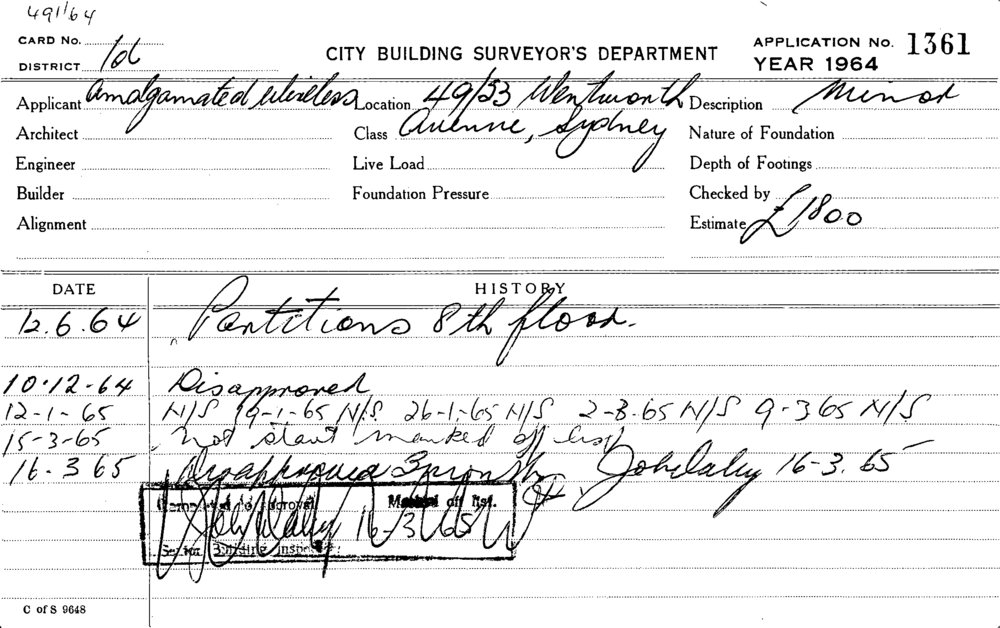 491/64
CARD No.
DISTRICT 1d
CITY BUILDING SURVEYOR'S DEPARTMENT
APPLICATION No. 1361
YEAR 1964
Applicant Amalgamated Wireless Location 49/53 Wentworth Description Minor
Architect Class Avenue, Sydney Nature of Foundation
Engineer Live Load Depth of Footings
Builder Foundation Pressure Checked by
Alignment Estimate £1800
DATE HISTORY
12.6.64 Partitions 8th floor.
10.12-64 Disapproved
12-1-65 N/S 19-1-65 N/S. 26-1-65 N/S 2-3.65 N/S 9-3 65 N/S
15-3-65 Not start marked off list
16-3 65 Disapproved John Daley 16-3.65
Completed to approval Marked off list.
John Daley 16-3-65
Senior Building Inspector
C of S 9648